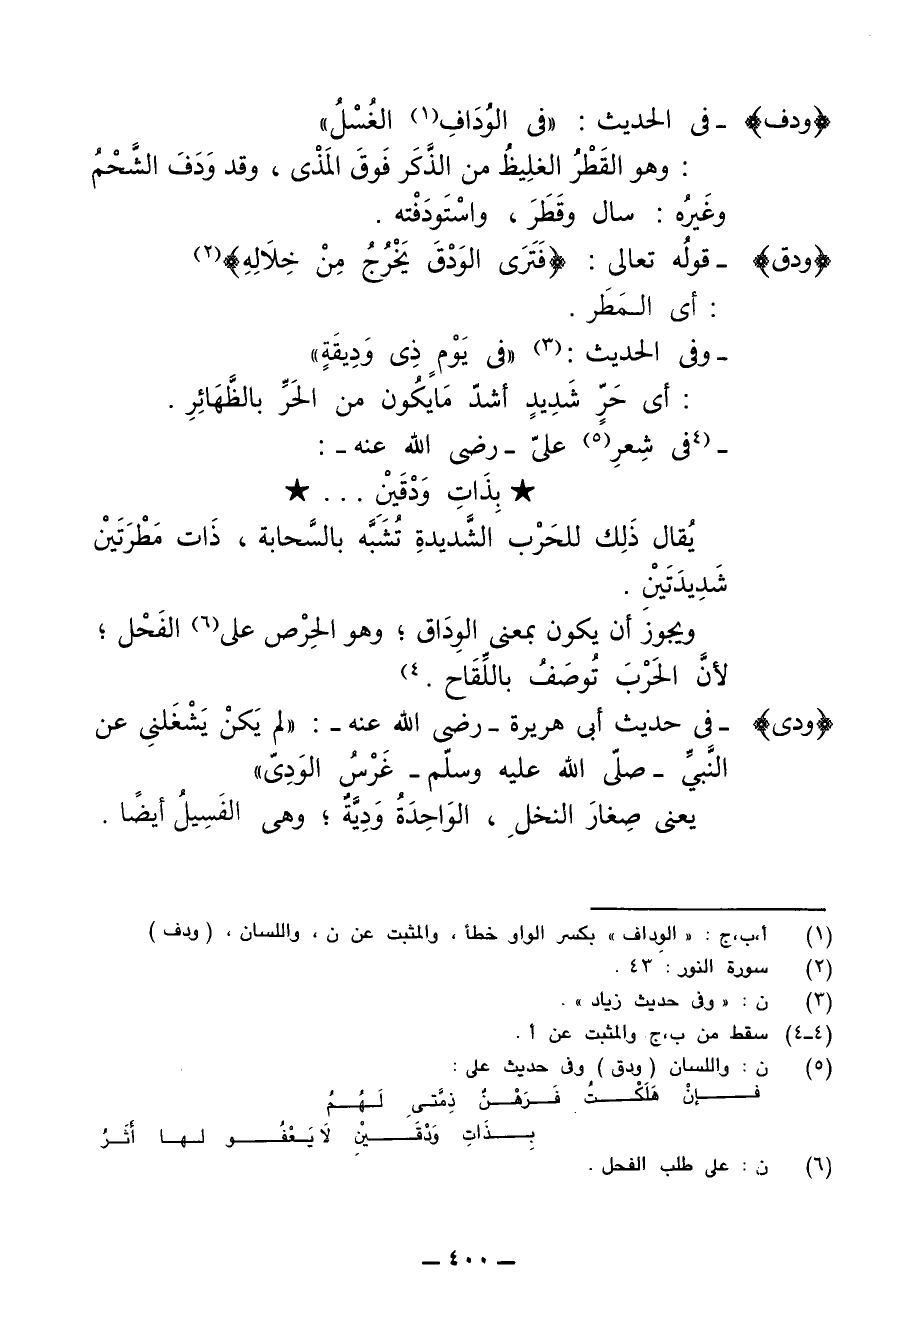 ﴿ودف﴾ ـ فى الحديث : «فى الوُدَافِ(١) الغُسْلُ»
: وهو القَطْرُ الغلِيظُ من الذَّكَر فَوقَ المَذْى ، وقد ودَفَ الشَّحْمُ
وغَيرُه : سال وقَطَرَ ، واسْتَودَفْته .
﴿ودق﴾ ـ قولُه تعالى : ﴿فَتَرَى الوَدْقَ يَخْرُجُ مِنْ خِلَالِهِ﴾(٢)
: أى المَطَر .
ـ وفى الحديث :(٣) «فى يَوْمٍ ذِى وَدِيقَةٍ»
: أى حَرٍّ شَدِيدٍ أشدّ مَايكُون من الحَرِّ بالظَّهَائِرِ .
ـ (٤فى شِعرِ(٥) علىّ ـ رضى الله عنه ـ :
★ بِذَاتِ وَدْقَيْنِ . . . ★
يُقال ذَلِك للحَرْب الشَّديدةِ تُشَبَّه بالسَّحابة ، ذَات مَطْرَتَيْن
شَدِيدَتَيْنِ .
ويجوز أن يكون بمعنى الوِدَاق ؛ وهو الحِرْص على(٦) الفَحْل ؛
لأنَّ الحَرْبَ تُوصَفُ باللِّقَاح .٤)
﴿ودى﴾ ـ فى حديث أبى هريرة ـ رضى الله عنه ـ : «لم يَكنْ يَشْغَلنِى عن
النَّبِىِّ ـ صلّى الله عليه وسلّم ـ غَرْسُ الوَدِىّ»
يعنى صِغارَ النخلِ ، الوَاحِدَةُ وَدِيَّةٌ ؛ وهى الفَسِيلُ أيضًا .
(١) أ،ب،ج : « الوِداف » بكسر الواو خطأ ، والمثبت عن ن ، واللسان ، ( ودف )
(٢) سورة النور : ٤٣ .
(٣) ن : « وفى حديث زياد » .
(٤ـ٤) سقط من ب،ج والمثبت عن أ .
(٥) ن : واللسان ( ودق ) وفى حديث على :
فـإنْ هَلَكْـتُ فَـرَهْـنٌ ذِمَّتى لَـهُـمُ
بِـذَاتِ وَدْقَـيْـنِ لَا يَـعْـفُـو لـهـا أَثَـرُ
(٦) ن : على طلب الفحل .
ـ ٤٠٠ ـ